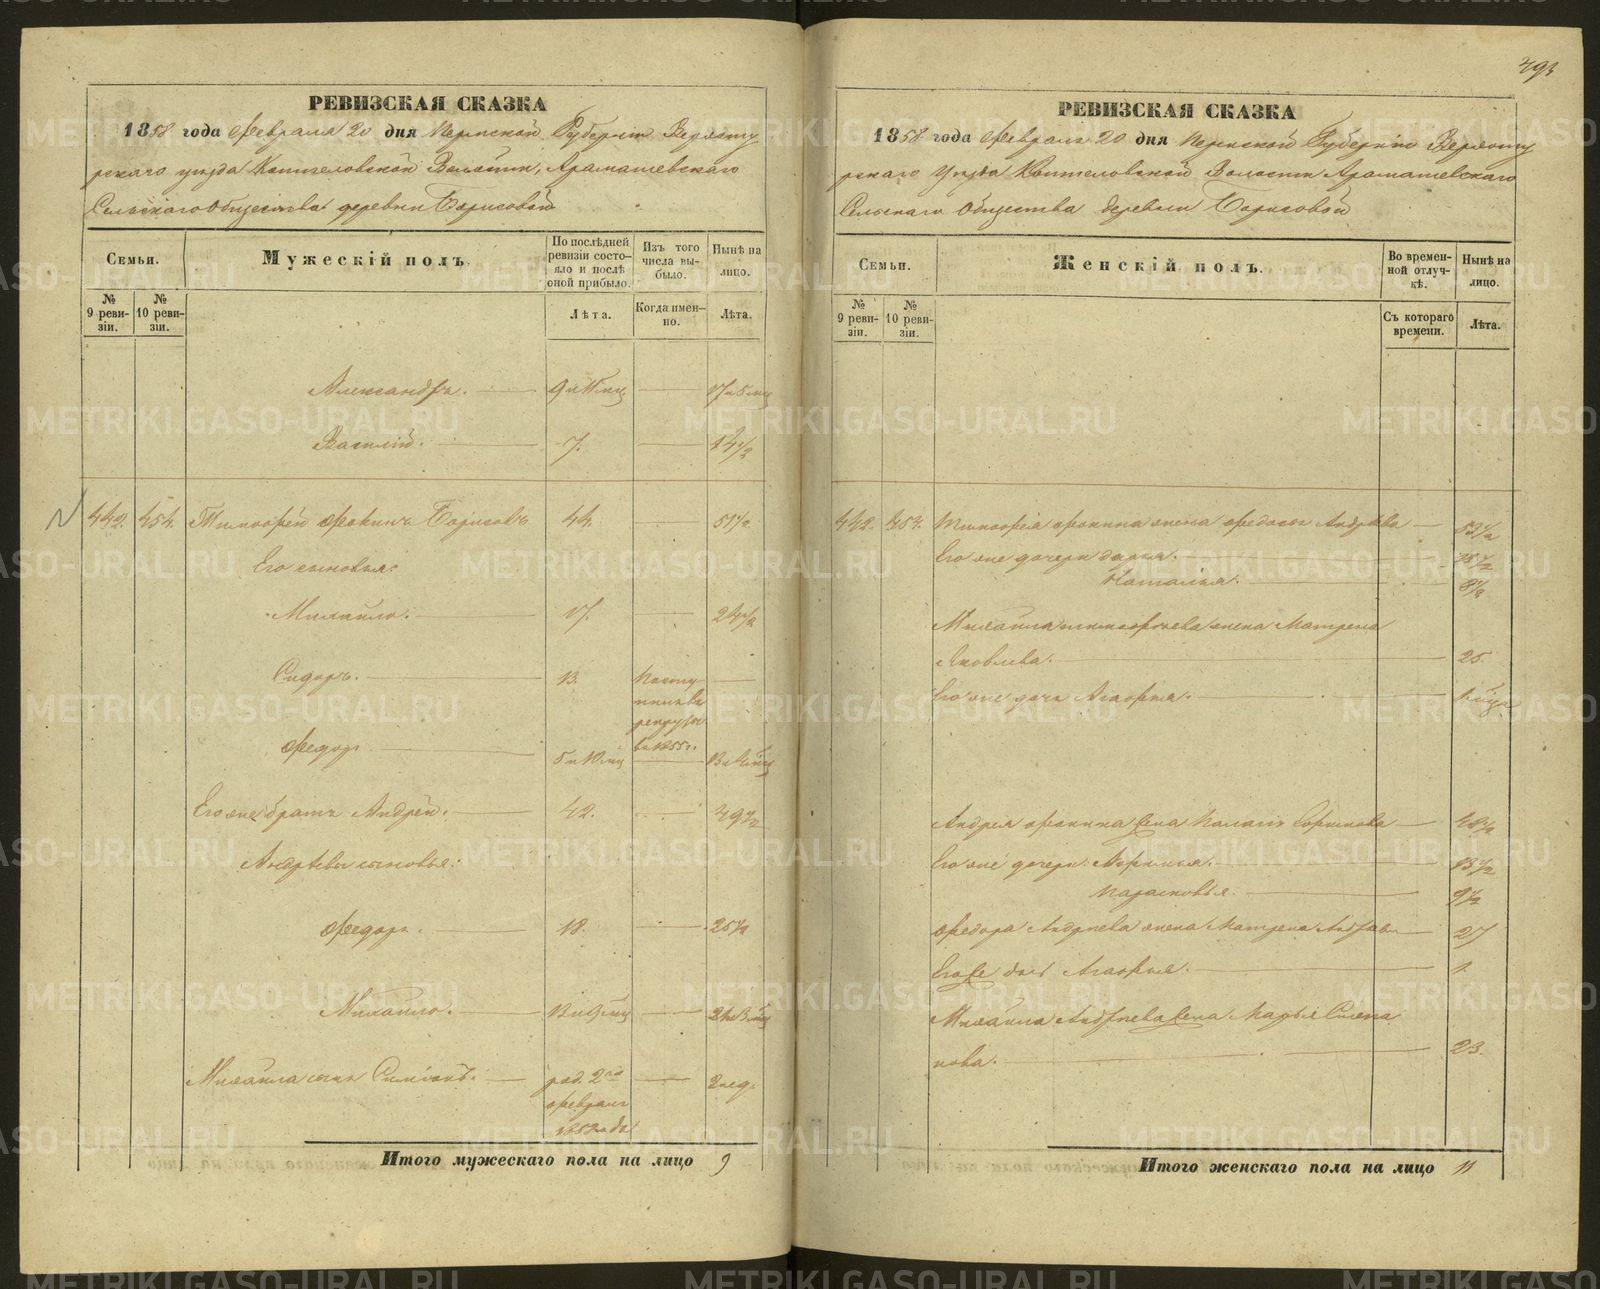 493
РЕВИЗСКАЯ СКАЗКА
1858 года Февраля 20 дня Пермской Губернiи Верхоту
рскаго уезда Коптеловской Волости, Арамашевскаго
Сельскаго Общества деревни Борисовой
Семьи.
Мужескій полъ.
По послѣдней ревизіи состояло и послѣ оной прибыло.
Изъ того числа выбыло.
Нынѣ на лицо.
№ 9 ревизіи.
№ 10 ревизіи.
Лѣта.
Когда именно.
Лѣта.
Александръ. 9 и 11 мц
Василій. 7. 14 1/2
442. 454. Тимофей Фокинъ Борисовъ 44. 51 1/2
Его сыновья:
Михайло. 17. 24 1/2
Сидоръ. 13.
рекруты
в 1855 г.
Федоръ 5 и 10 мц
Его же братъ Андрей. 42. 49 1/2
Андреевы сыновья:
Федоръ. 18. 25 1/2
Михайло.
Михайла сынъ Симеонъ. род. 2го
февраля
Итого мужескаго пола на лицо 9
РЕВИЗСКАЯ СКАЗКА
1858 года Февраля 20 дня Пермской Губернiи Верхоту
рскаго Уезда Коптеловской Волости Арамашевскаго
Сельскаго Общества деревни Борисовой
Семьи.
Женскій полъ.
Во временной отлучкѣ.
Нынѣ на лицо.
№ 9 ревизіи.
№ 10 ревизіи.
Съ котораго времени.
Лѣта.
442. 454. Тимофея Фокина жена Федосья Андрѣева 53 1/2
Его же дочери Дарья.
Наталья. 8 1/2
Михайла Тимофеева жена Матрена
Яковлева. 25.
Его же дочь Агафья.
Андрея Фокина жена Палагея
Его же дочери: 13 1/2
Парасковья. 9 1/2
Федора Андреева жена Матрена 27
Его же дочь Агафья. 1.
Михайла Андреева жена Марья Степа
нова. 23.
Итого женскаго пола на лицо 11
METRIKI.GASO-URAL.RU